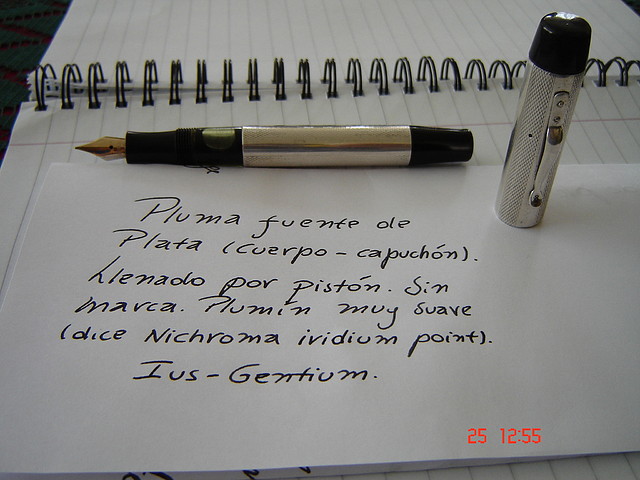 Pluma fuente de
Plata (cuerpo - capuchón).
Llenado por pistón. Sin
marca. Plumín muy suave
(dice Nichroma iridium point).
Ius - Gentium.
25 12:55